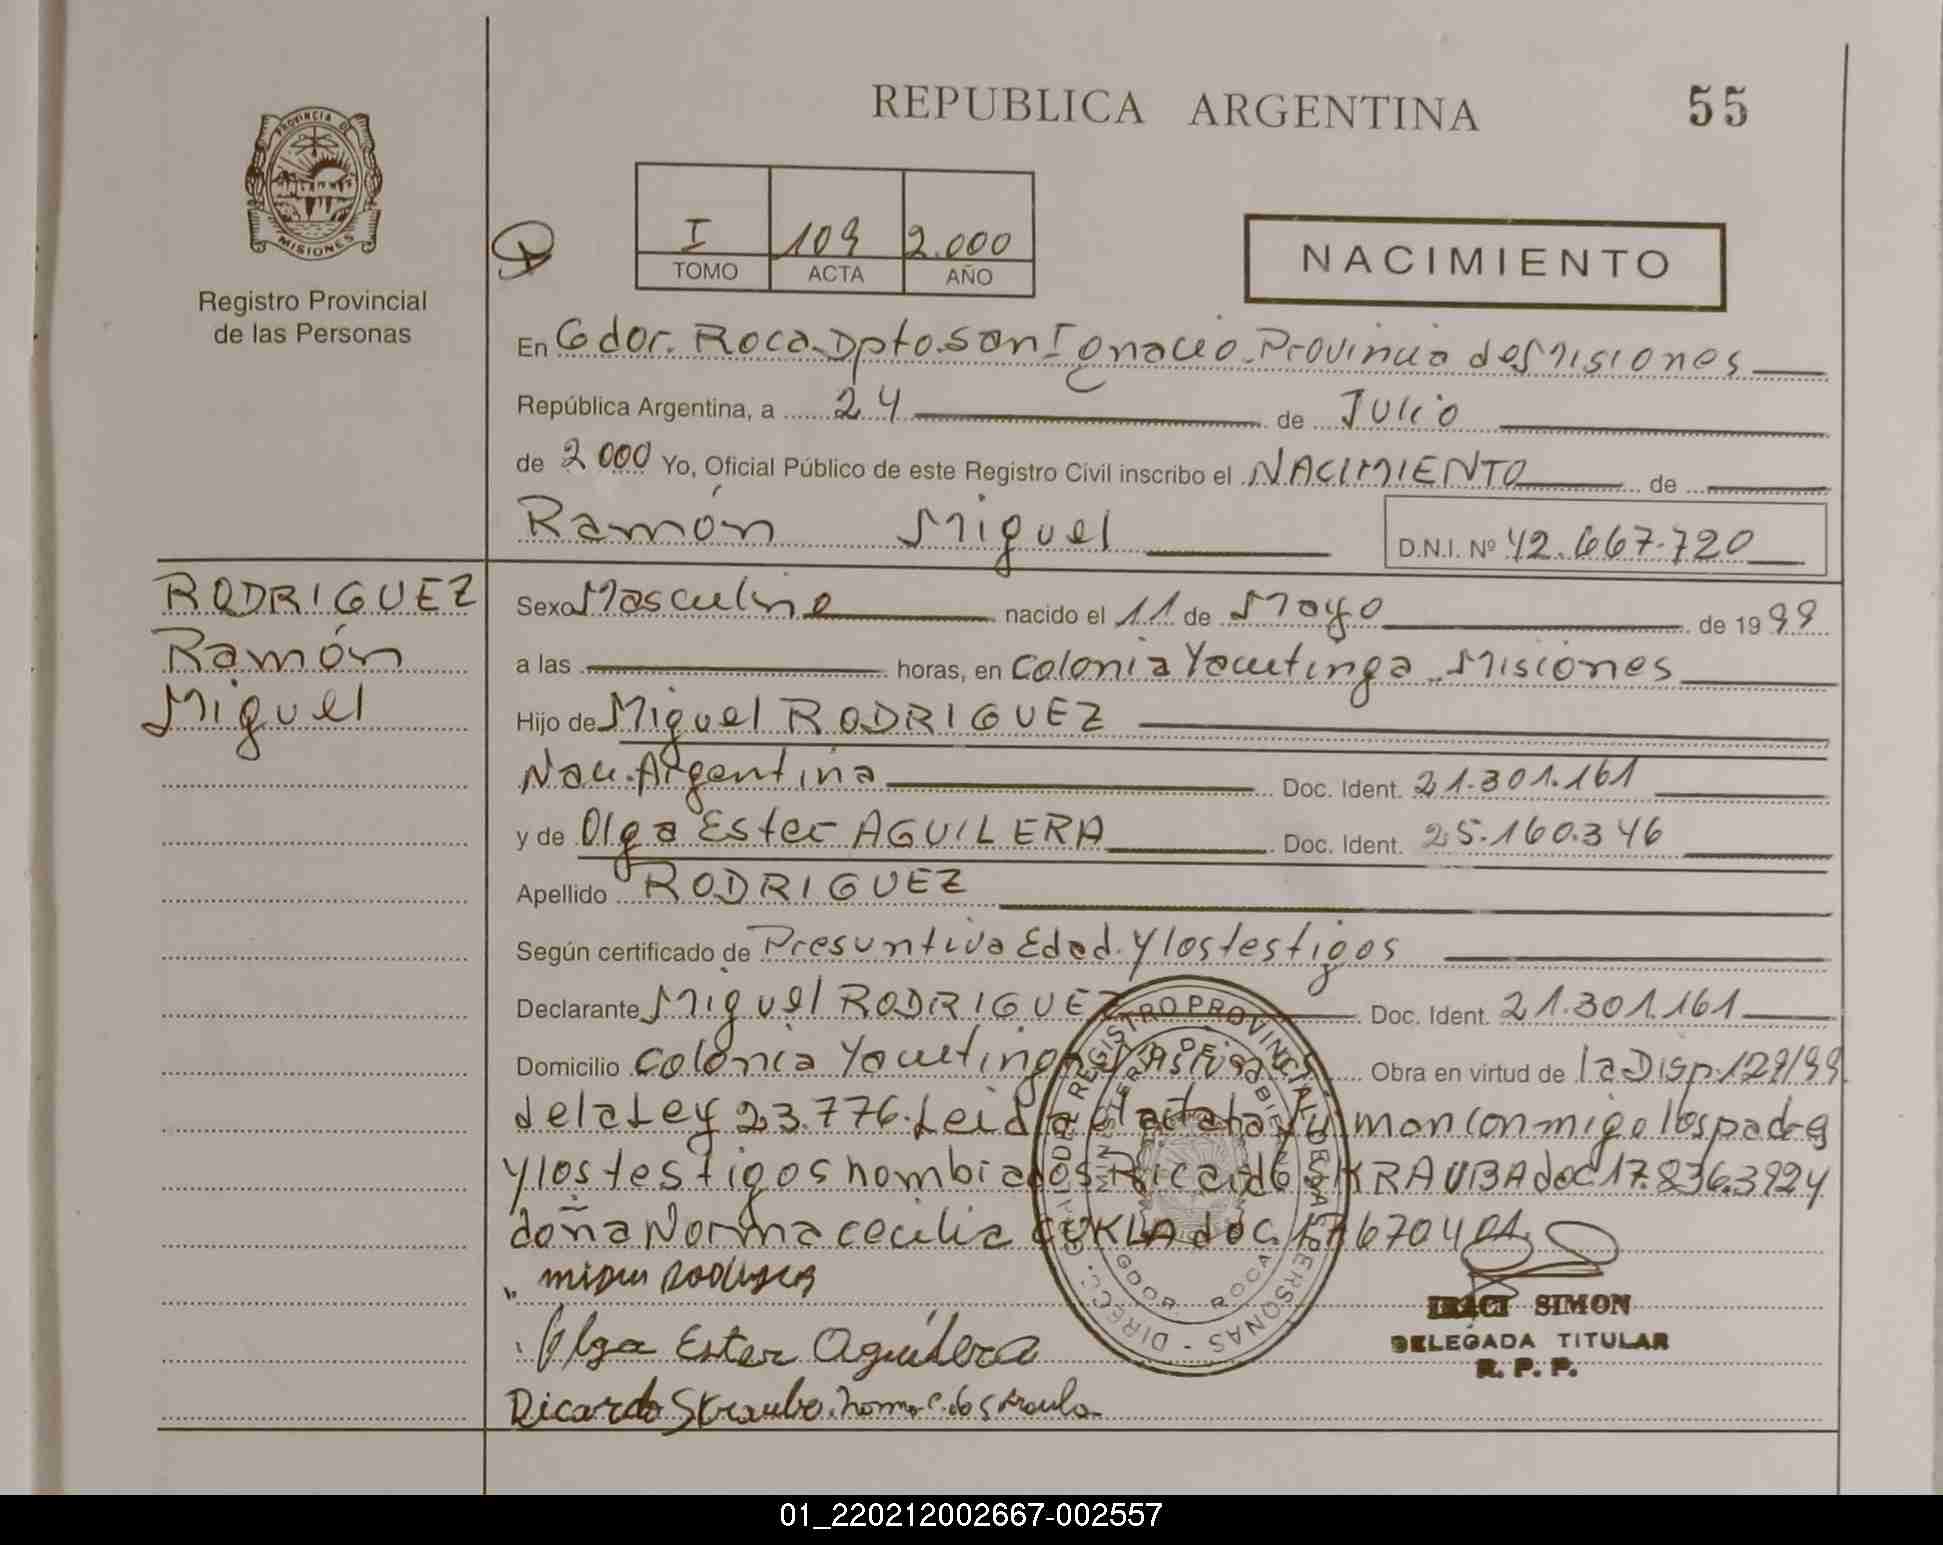 REPUBLICA ARGENTINA
55
PROVINCIA DE MISIONES
Registro Provincial
de las Personas
I 109 2.000
TOMO ACTA AÑO
NACIMIENTO
En Gdor. Roca Dpto. San Ignacio Provincia de Misiones
República Argentina, a 24 de Julio
de 2000 Yo, Oficial Público de este Registro Civil inscribo el NACIMIENTO de
Ramón Miguel
D.N.I. Nº 42.667.720
RODRIGUEZ
Ramón
Miguel
Sexo Masculino nacido el 11 de Mayo de 1999
a las horas, en Colonia Yacutinga Misiones
Hijo de Miguel RODRIGUEZ
Nac. Argentina Doc. Ident. 21.301.161
y de Olga Ester AGUILERA Doc. Ident. 25.160.346
Apellido RODRIGUEZ
Según certificado de Presuntiva Edad y los testigos
Declarante Miguel RODRIGUEZ Doc. Ident. 21.301.161
Domicilio Colonia Yacutinga Misiones Obra en virtud de la Disp. 129/99
de la Ley 23.776. Leida el acta la firman conmigo los padres
y los testigos nombrados Ricardo SKRAUBA doc 17.836.392 y
doña Norma Cecilia CUKLA doc.
Olga Ester Aguilera
Ricardo Skrauba
SIMON
DELEGADA TITULAR
R. P. P.
DIRECC. GRAL. DEL REGISTRO PROVINCIAL DE LAS PERSONAS
MINISTERIO DE GOBIERNO
GDOR. ROCA
01_220212002667-002557